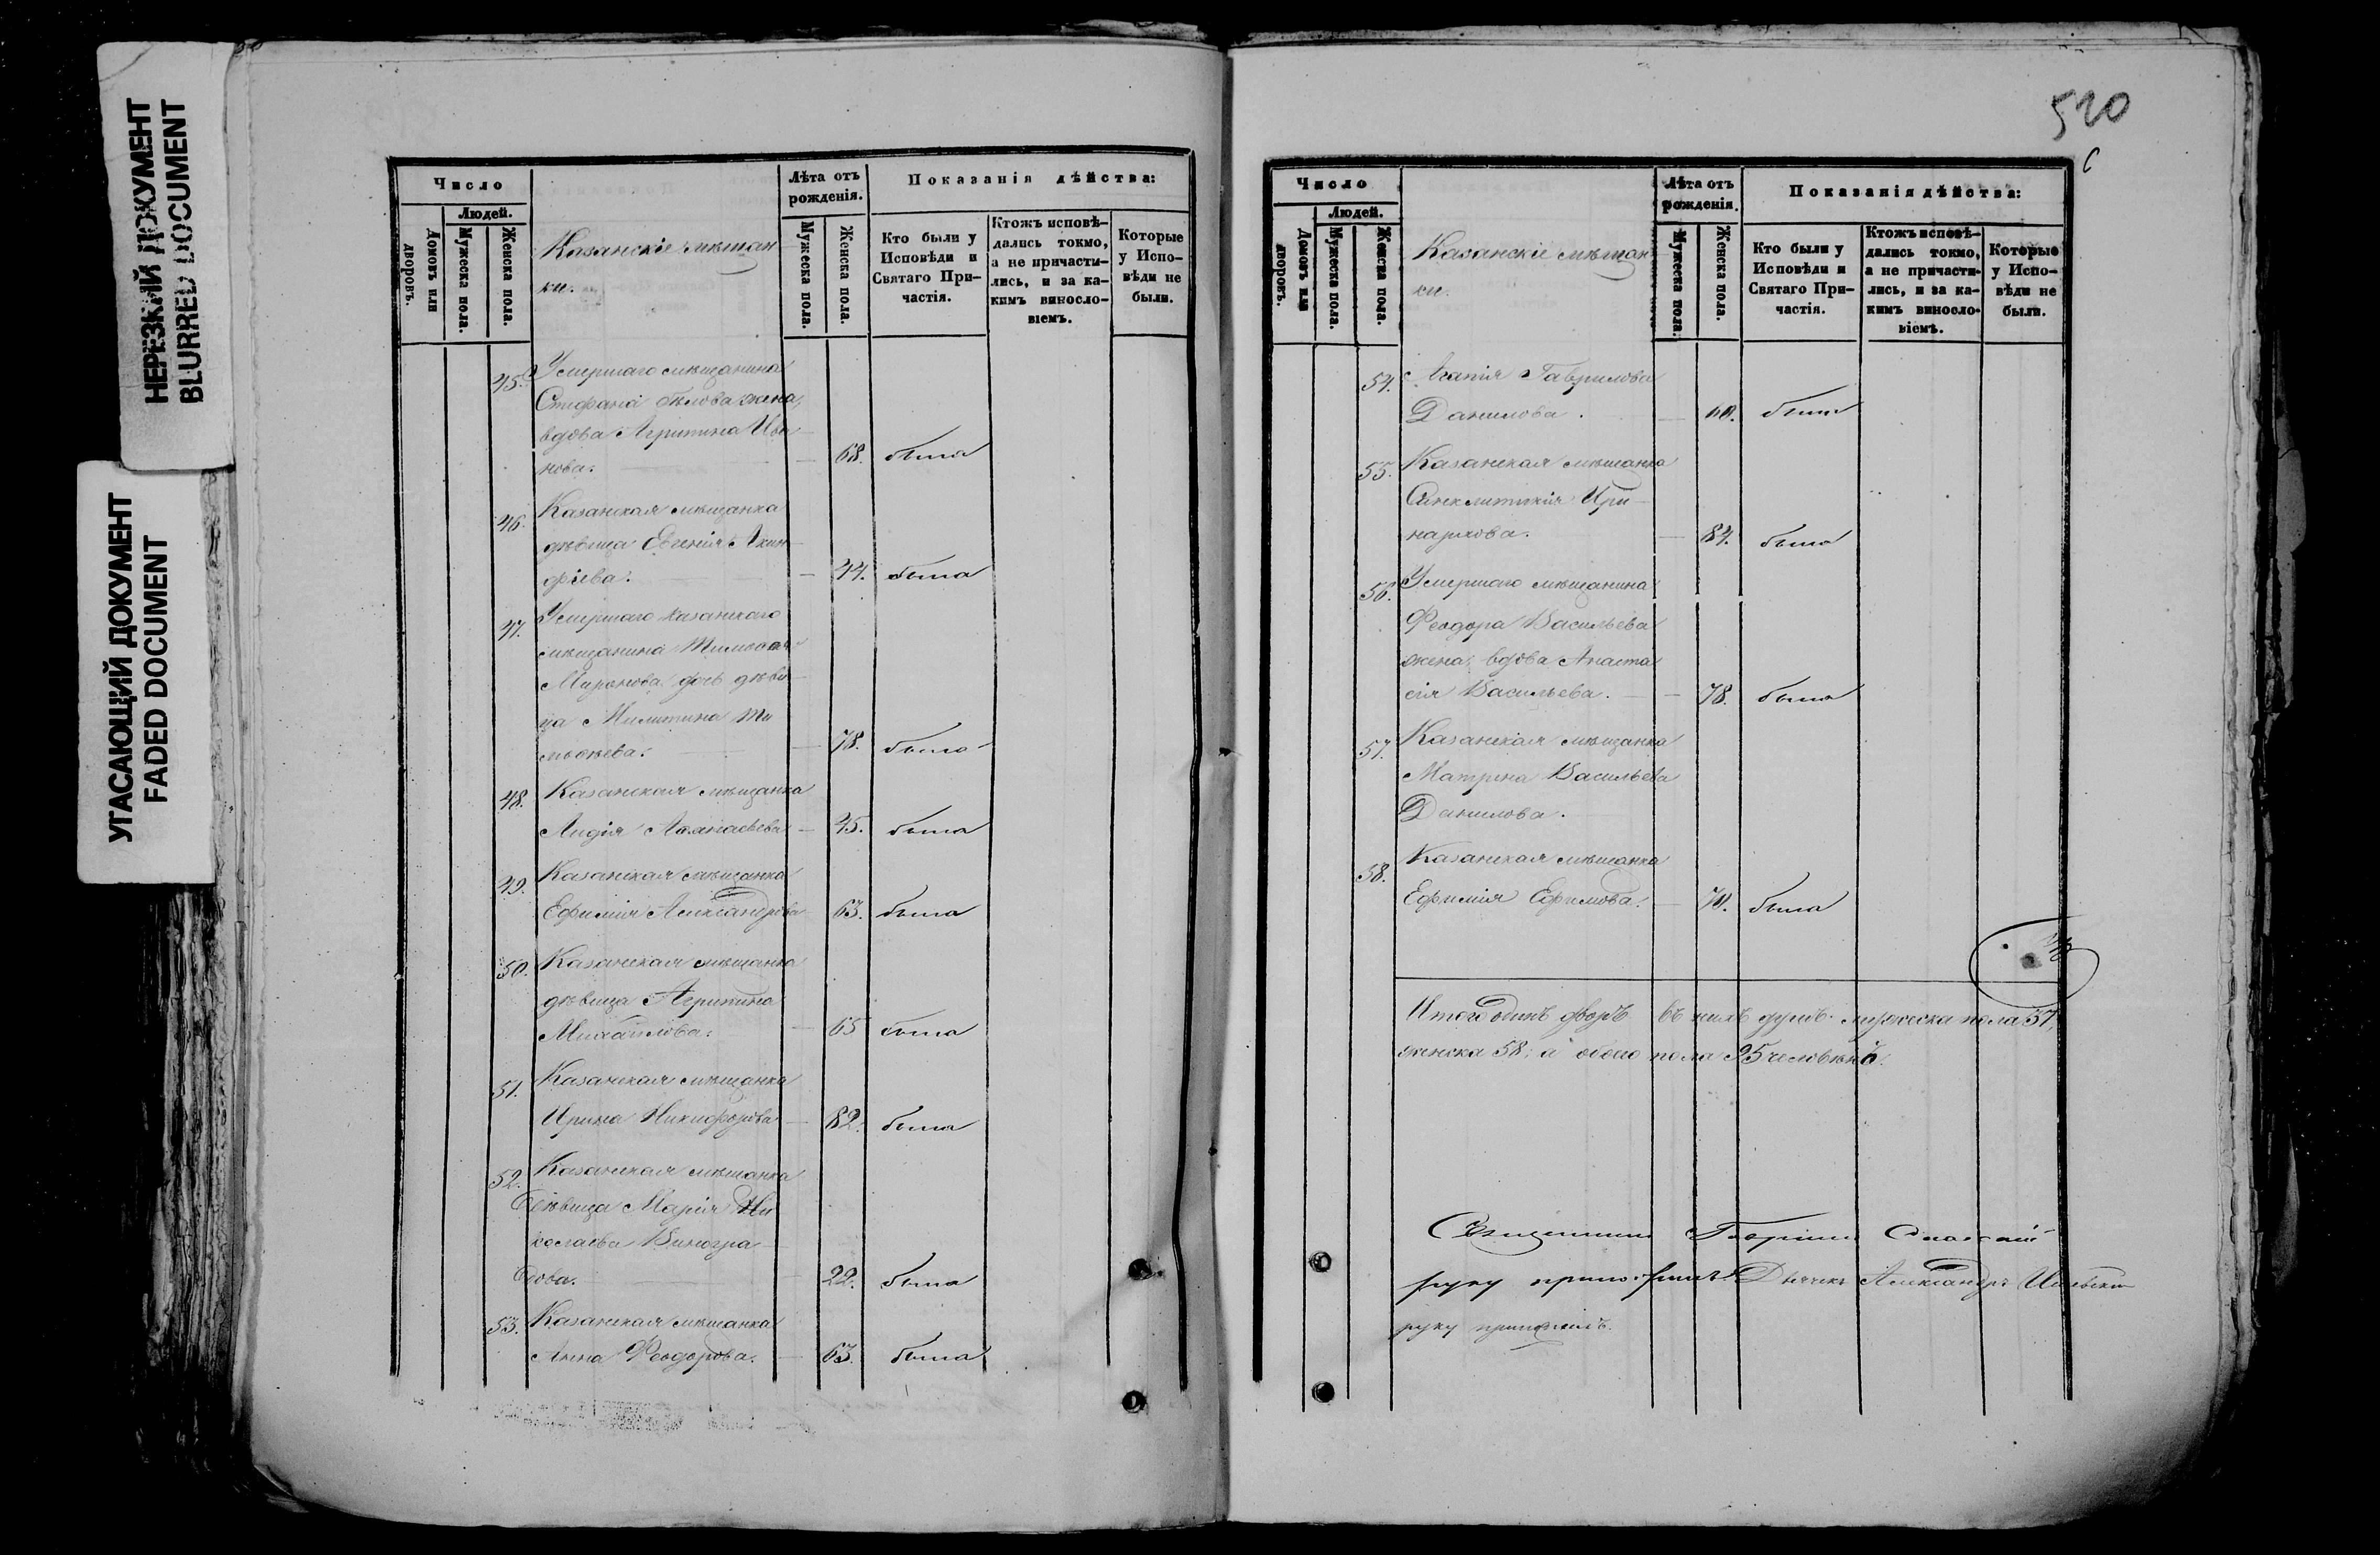 НЕРЕЗКИЙ ДОКУМЕНТ
BLURRED DOCUMENT
УГАСАЮЩИЙ ДОКУМЕНТ
FADED DOCUMENT
Число
Людей.
Домовъ или дворовъ.
Мужеска пола.
Женска пола.
Казанскіе мѣщан
ки.
Лѣта отъ
рожденія.
Мужеска пола.
Женска пола.
Показанія дѣйства:
Кто были у
Исповѣди и
Святаго При-
частія.
Ктожъ исповѣ-
дались токмо,
а не причасти-
лись, и за ка-
кимъ виносло-
віемъ.
Которые
у Испо-
вѣди не
были.
45. Умершаго мѣщанина
Стефана Бѣлова жена,
вдова Агрипина Ива
нова. 68. была
46. Казанская мѣщанка
дѣвица Евгенія Акин
фіева. 44. была
47. Умершаго казанскаго
мѣщанина Тимофея
Миронова дочь дѣви
ца Милитина Ти
мофѣева. 78. была
48. Казанская мѣщанка
Лидія Афанасьева 45. была
49. Казанская мѣщанка
Ефимія Александрова 63. была
50. Казанская мѣщанка
дѣвица Агрипина
Михайлова. 65 была
51. Казанская мѣщанка
Ирина Никифорова 82. была
52. Казанская мѣщанка
дѣвица Марія Ни
колаева Виногра
дова. 22. была
53. Казанская мѣщанка
Анна Феодорова. 63. была
520
Число
Людей.
Домовъ или дворовъ.
Мужеска пола.
Женска пола.
Казанскіе мѣщан
ки.
Лѣта отъ
рожденія.
Мужеска пола.
Женска пола.
Показанія дѣйства:
Кто были у
Исповѣди и
Святаго При-
частія.
Ктожъ исповѣ-
дались токмо,
а не причасти-
лись, и за ка-
кимъ виносло-
віемъ.
Которые
у Испо-
вѣди не
были.
54. Агапія Гаврилова
Данилова. 60. была
55. Казанская мѣщанка
Синклитикія Ири
нархова. 84. была
56. Умершаго мѣщанина
Феодора Васильева
жена, вдова Анаста
сія Васильева. 78. была
57. Казанская мѣщанка
Матрена Васильева
Данилова.
58. Казанская мѣщанка
Ефимія Ефимова. 70. была
Итого одинъ дворъ въ нихъ душъ. мужеска пола 37,
женска 58, а обоего пола 95 человѣкъ.
Священникъ Спасскій
руку приложилъ. Дьячекъ Александръ
руку приложилъ.